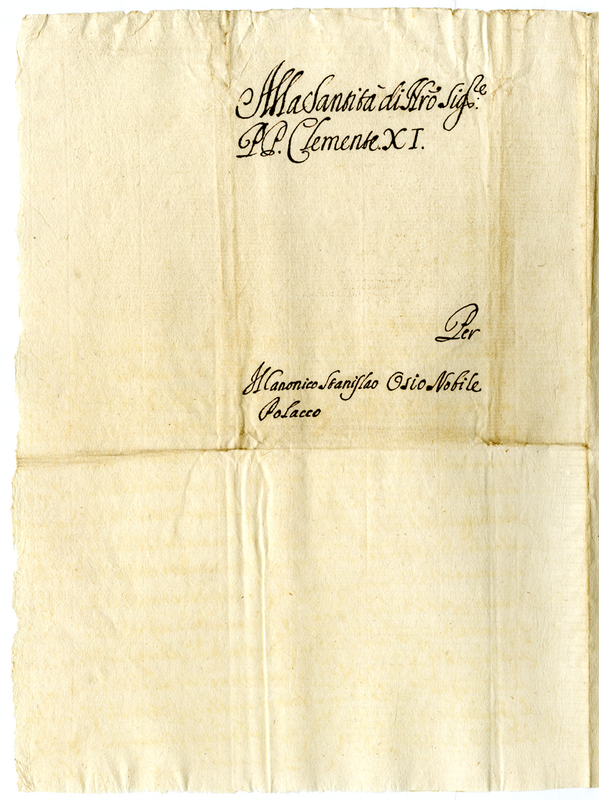 Alla Santità di Nr̃o Sig.re:
PP. Clemente XI.
Per
Il Canonico Stanislao Osio Nobile
Polacco